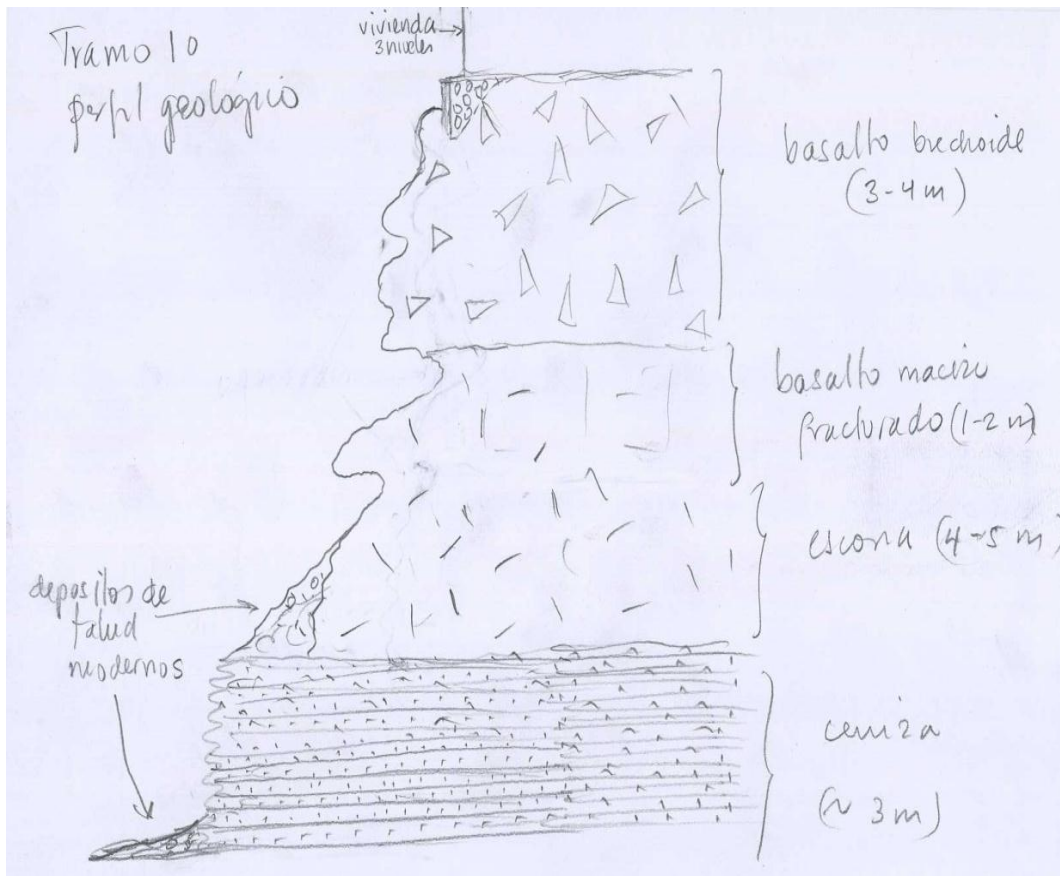 Tramo 10
perfil geológico
vivienda
3 niveles
basalto brechoide
(3-4 m)
basalto macizo
fracturado (1-2 m)
escoria (4-5 m)
depositos de
talud
modernos
ceniza
(~ 3 m)